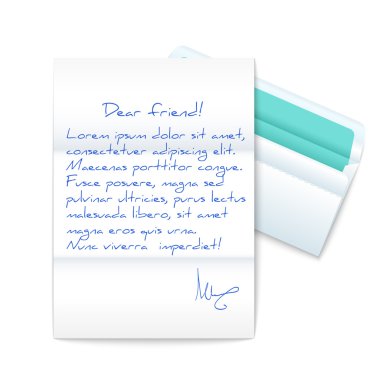 Dear friend!
Lorem ipsum dolor sit amet,
consectetuer adipiscing elit.
Maecenas porttitor congue.
Fusce posuere, magna sed
pulvinar ultricies, purus lectus
malesuada libero, sit amet
magna eros quis urna.
Nunc viverra imperdiet!